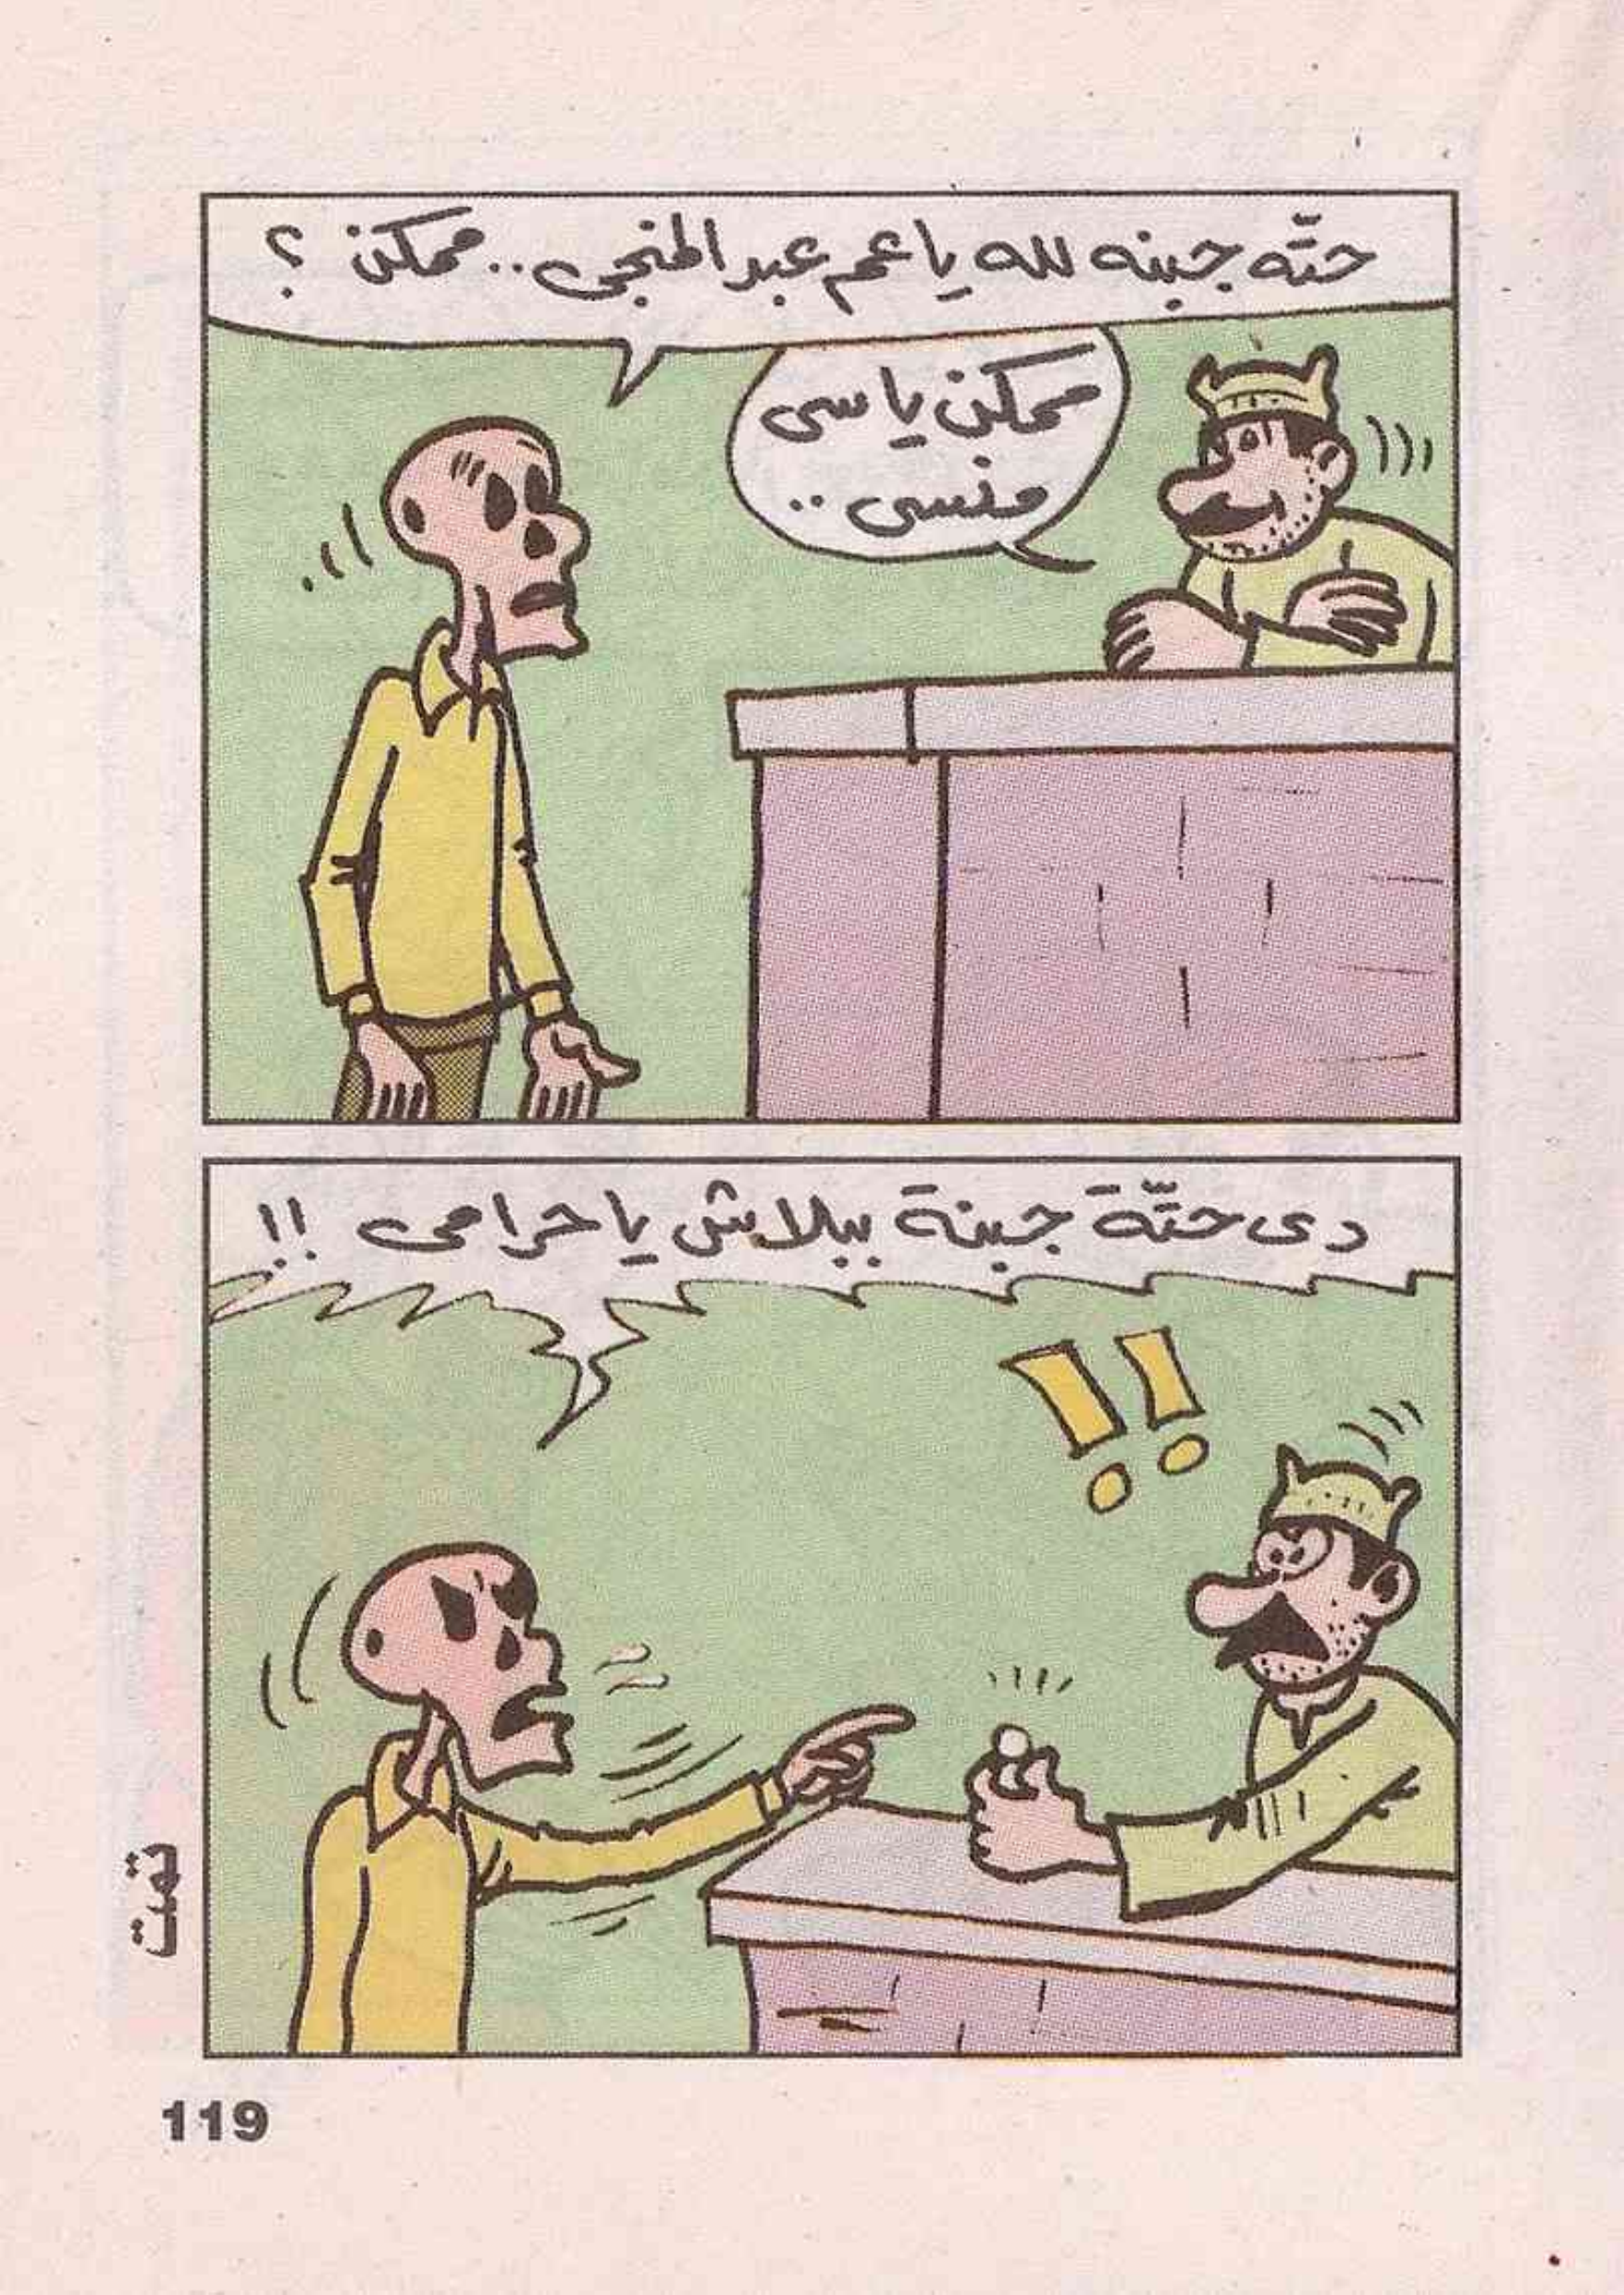 حتّه جبنه لله يا عم عبد المنجى.. ممكن ؟
ممكن يا سى
منسى ..
دى حتّة جبنة ببلاش يا حرامى !!
تمت
119